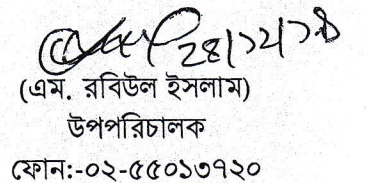 ২৪/১২/১৪
(এম. রবিউল ইসলাম)
উপপরিচালক
ফোন:-০২-৫৫০১৩৭২০